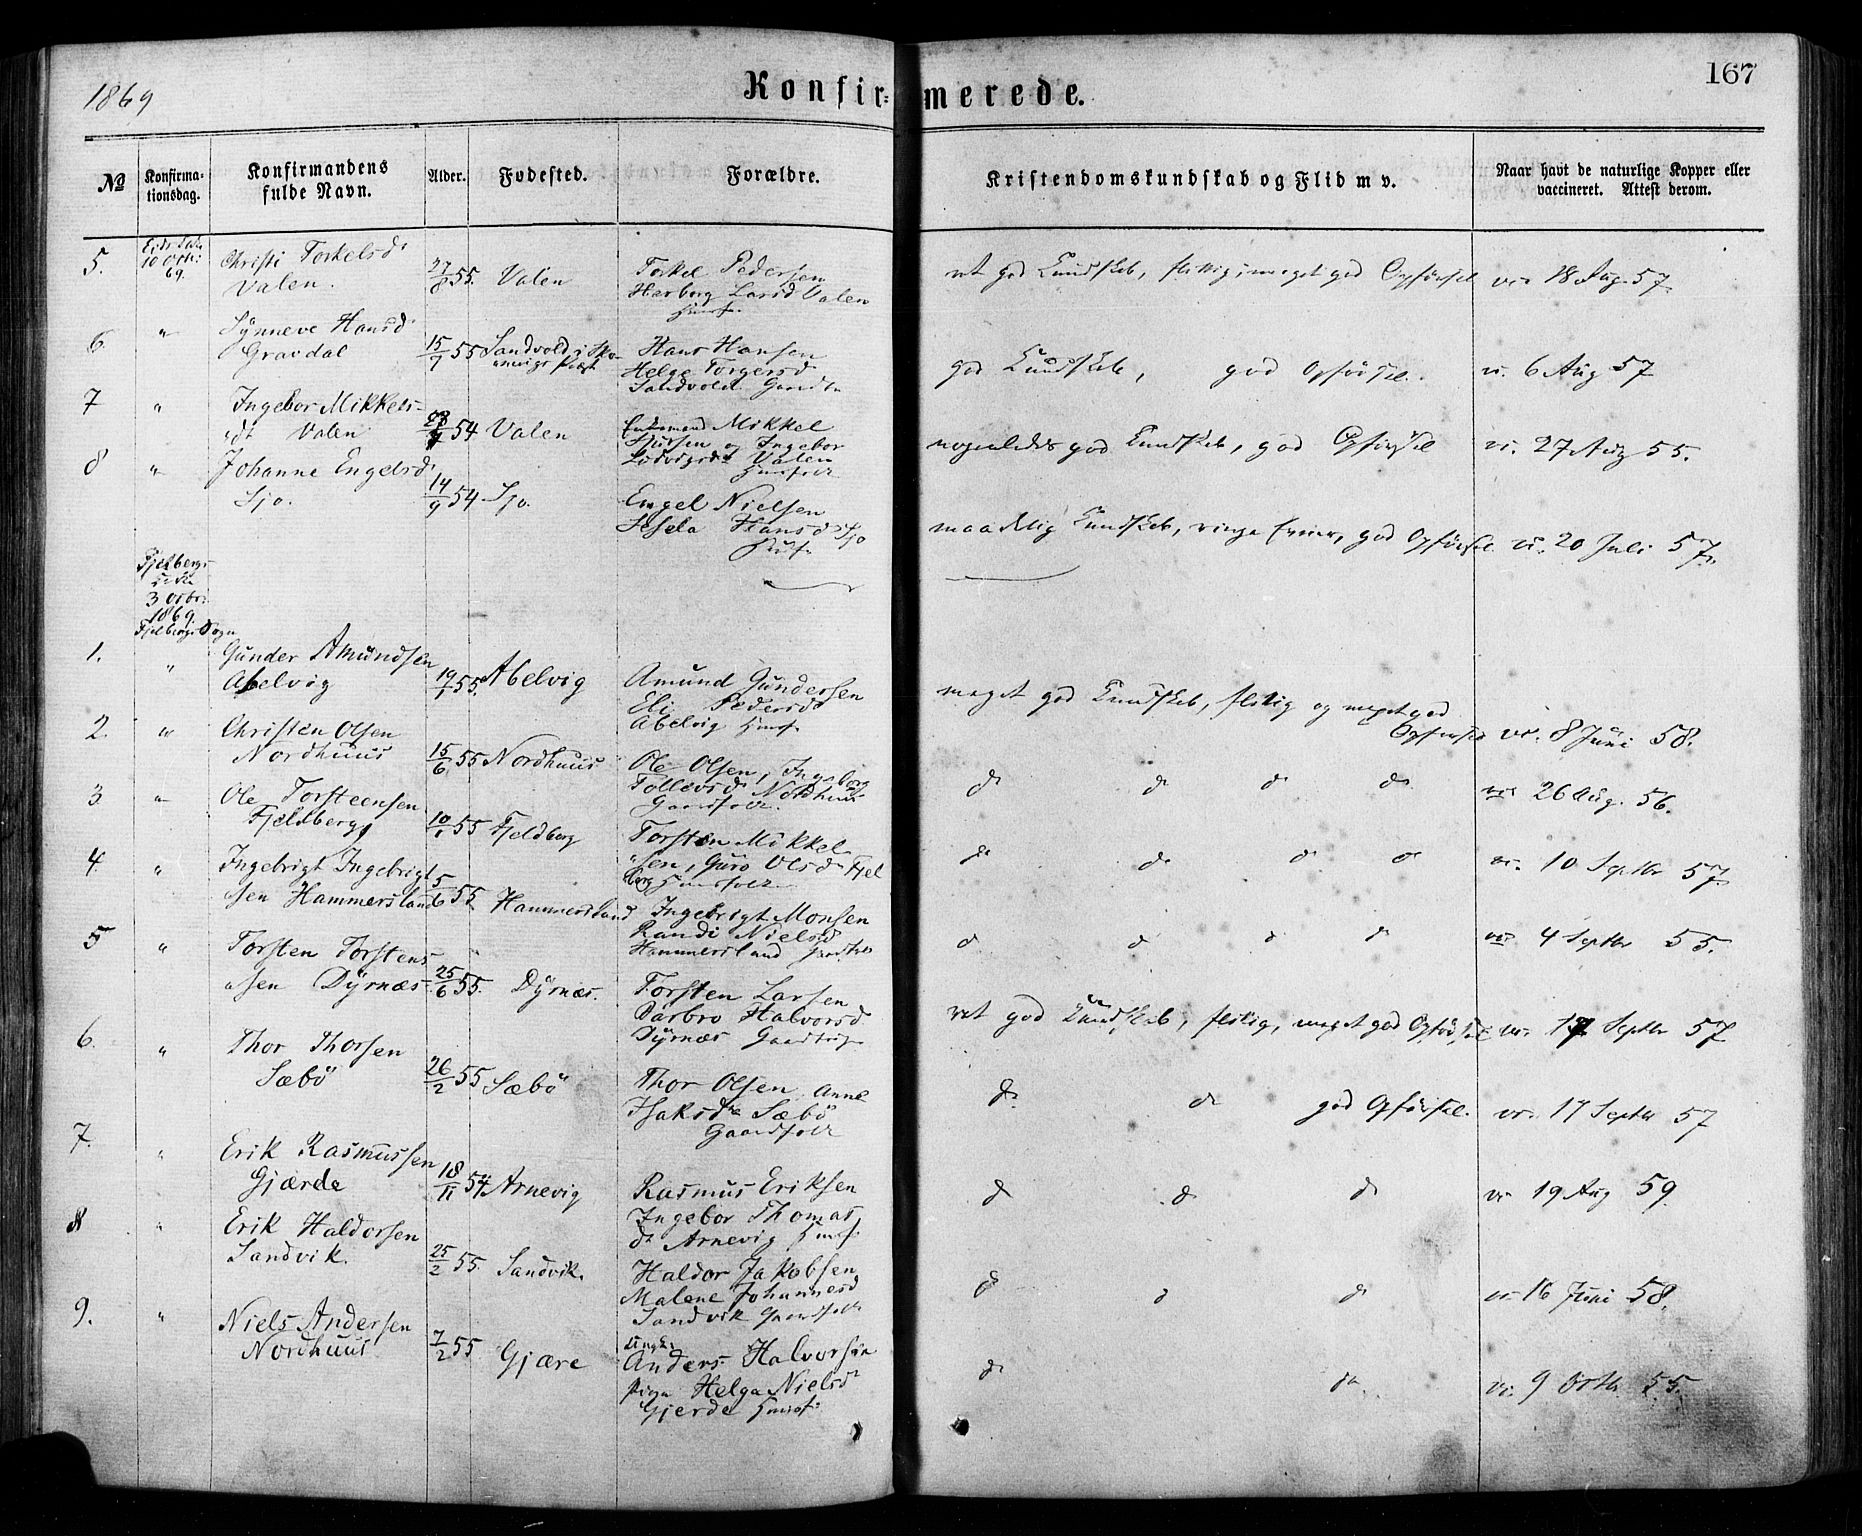 1869
Konfirmerede.
167
№
Konfirmationsdag.
Konfirmandens fulde Navn.
Alder.
Fødested.
Forældre.
Kristendomskundskab og Flid m v.
Naar havt de naturlige Kopper eller vaccineret. Attest derom.
5. 10 Octr: 69. Christi Torkelsdr 27/8 55. Valen Torkel Pedersen ret god Kundskab, flittig, meget god Opførsel vr 18 Aug. 57.
Valen. Herborg Larsd Valen
Huusf.
6. " Synneve Hansd 15/7 55 Sandvold i Hans Hansen god Kundskab, god Opførsel. v. 6 Aug 57
Gravdal Helge Torgersd
Sandvold
7 " Ingebor Mikkels- 54 Valen Mikkel nogenledes god Kundskab, god Opførsel v. 27 Aug 55.
dt Valen Sjursen og Ingebor
Valen
Huusfolk
8 " Johanne Engelsd 14/9 54 Sjo. Engel Nielsen maadelig Kundskab, ringe god Opførsel v. 20 Juli 57.
Sjo. Sesela Hansd Sjo
Huusf
Fjelbergs
Kirke
3 Octbr:
1869.
Fjelbergs Sogn
1. " Gunder Amundsen 19/1 55. Abelvig Amund Gundersen meget god Kundskab, flittig og meget god
Abelvig Eli Pedersd Opførsel vr. 8 Juni 58.
Abelvig Huusf
2. " Christen Olsen 15/6 55 Nordhuus Ole Olsen, Ingeborg d d d d vr 26 Aug. 56.
Nordhuus Tollevsd Nordhuus
Gaardfolk.
3 " Ole Torsteensen 55 Fjeldberg Torsten Mikkel d d d d v. 10 Septbr 57.
Fjeldberg sen, Guro Olsd Fjel
berg Huusfolk
4. " Ingebrigt Ingebrigt 5/6 55 Hammersland Ingebrigt Monsen d d d d vr 4 Septbr 55.
sen Hammersland Randi Nielsd
Hammersland
5 " Torsten Torstens 25/6 55. Dyrnæs. Torsten Larsen ret god Kundskab, flittig, meget god Opførsel vr 17 Septbr 57
sen Dyrnæs Barbro Halvorsd
Dyrnæs Gaardbrf
6. " Thor Thorsen 26/2 55 Sæbø Thor Olsen Anne d d god Opførsel. vr. 17 Septbr 57
Sæbø Isaksdtr Sæbø
Gaardfolk
7. " Erik Rasmussen 18/11 54 Arnevig Rasmus Eriksen d d d vr 19 Aug 59.
Gjærde Ingebor Thomas
dr Arnevig Huusf.
8 " Erik Haldorsen 25/2 55. Sandvik. Haldor Jakobsen d d d vr 16 Juni 58.
Sandvik. Malene Johannesd
Sandvik Gaardfolk
9. " Niels Andersen 7/2 55 Gjære Ungk. d d v. 9 Octbr 55.
Nordhuus Anders Halvorsen
Pige Helga Nielsdr
Gjerde Huusf